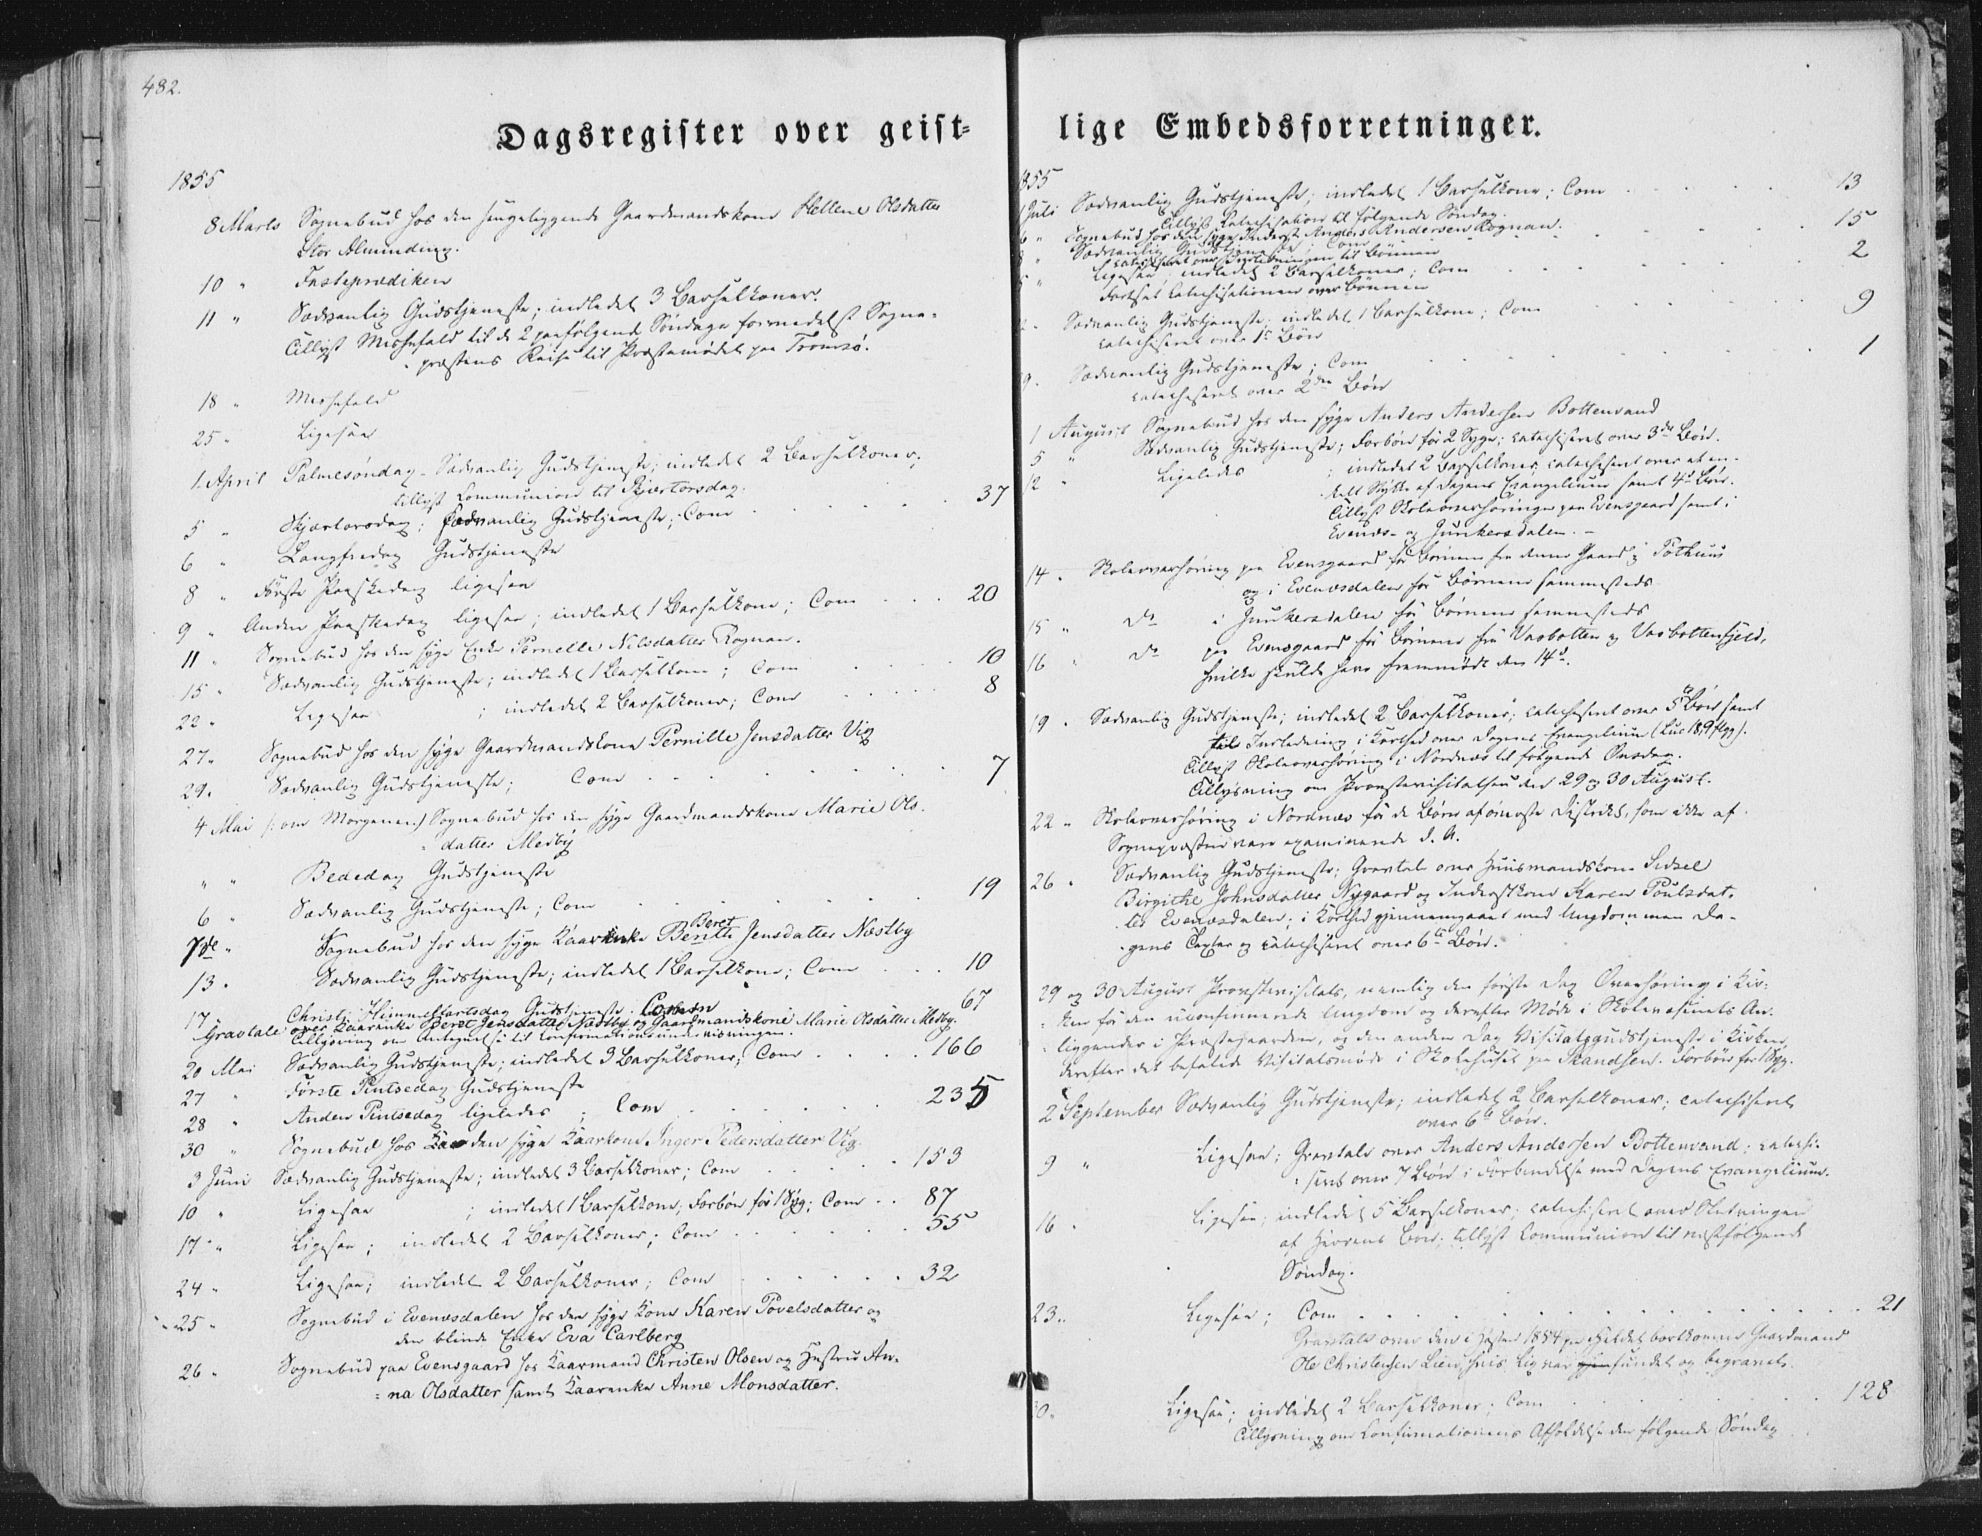 482.
Dagsregister over geist=
1855
8 Marts Sognebud hos den sengeliggende Gaardmandskone Hellene Olsdatter
Stor Alminding.
10 " Fasteprædiken
11 " Sædvanlig Gudstjeneste; indledet 3 Barselkoner.
Tillyst Messefald til de 2 paafølgende Søndage formedelst Sogne-
præstens Reise til Præstemødet paa Tromsø.
18 " Messefald
25 " Ligesaa
1 April Palmesøndag - Sædvanlig Gudstjeneste; indledet 2 Barselkoner;
tillyst Communion til Skjærtorsdag.
5 " Skjærtorsdag; sædvanlig Gudstjeneste; Com . . . 37
6 " Langfredag Gudstjeneste
8 " Første Paaskedag ligesaa
9 " Anden Paaskedag ligesaa; indledet 1 Barselkone; Com . . . 20
11 " Sognebud hos den syge Enke Pernelle Nilsdatter Rognan.
15 " Sædvanlig Gudstjeneste; indledet 1 Barselkone; Com . . . 10
22 " Ligesaa ; indledet 2 Barselkoner; Com . . . 8
27 " Sognebud hos den syge Gaardmandskone Pernille Jensdatter Vig
29 " Sædvanlig Gudstjeneste; Com . . . 7
4 Mai (: om Morgenen:) Sognebud hos den syge Gaardmandskone Marie Ols-
datter Medby
" " Bededag Gudstjeneste
6 " Sædvanlig Gudstjeneste; Com . . . 19
7de " Sognebud hos den syge Kaarenke Berith Beret Jensdatter Næstby
13 " Sædvanlig Gudstjeneste; indledet 1 Barselkone; Com . . . 10
17 " Christi Himmelfartsdag Gudstjeneste; Com . . . 67
Gravtale over Kaarenke Beret Jensdatter Næstby og Gaardmandskone Marie Olsdatter Medby.
Tillysning om Antegnelse til Confirmationsunderviisningen.
20 Mai Sædvanlig Gudstjeneste; indledet 3 Barselkoner; Com . . . 166
27 " Første Pintsedag Gudstjeneste
28 " Anden Pintsedag ligeledes ; Com . . . 235
30 " Sognebud hos den syge Kaarkone Inger Pedersdatter Vig.
3 Juni Sædvanlig Gudstjeneste; indledet 3 Barselkoner; Com . . . 153
10 " Ligesaa ; indledet 1 Barselkone; Forbøn for 1 Syg; Com . . 87
17 " Ligesaa; indledet 2 Barselkoner; Com . . . 55
24 " Ligesaa; indledet 2 Barselkoner; Com . . . 32
25 " Sognebud i Evenesdalen hos den syge Kone Karen Povelsdatter og
den blinde Enke Eva Carlberg
26 " Sognebud paa Evensgaard hos Kaarmand Christen Olsen og Hustru An-
na Olsdatter samt Kaarenke Anne Monsdatter.
lige Embedsforretninger.
855
1 Juli Sædvanlig Gudstjeneste; indledet 1 Barselkone; Com . . . 13
Tillyst Katechisation til følgende Søndag.
6 " Sognebud hos den syge Inderst Anders Andersen Rognan.
8 " Sædvanlig Gudstjeneste; Com . . . 15
catechiseret over Indledningen til Bønnen
5 " Ligesaa; indledet 2 Barselkoner; Com . . . 2
Fortsat Catechisationen over Bønnen
2 " Sædvanlig Gudstjeneste; indledet 1 Barselkone; Com . . . 9
catechiseret over 1e Bøn
9 " Sædvanlig Gudstjeneste; Com . . . 1
catechiseret over 2den Bøn
1 August Sognebud hos den syge Anders Andersen Bottenvand
5 " Sædvanlig Gudstjeneste; Forbøn for 2 Syge; catechiseret over 3de Bøn.
12 " Ligeledes ; indledet 2 Barselkoner; catechiseret over et en-
kelt Stykke af Dagens Evangelium samt 4de Bøn.
Tillyst Skoleoverhøringer paa Evensgaard samt i
Evenes- og Junkersdalen. -
14 " Skoleoverhøring paa Evensgaard for Børnene fra denne Gaard og Pothuus
og i Evenesdalen for Børnene sammesteds
15 " Do i Junkersdalen for Børnene sammesteds
16 " Do paa Evensgaard for Børnene fra Vasbotten og Vasbottenfjeld,
hvilke skulde have fremmødt den 14d.
19 " Sædvanlig Gudstjeneste; indledet 2 Barselkoner; catechiseret over 5te Bøn samt
Indledning i Korthed over Dagens Evangelium (Luc 18,9 flgg).
Tillyst Skoleoverhøring i Nordnæs til følgende Onsdag.
Tillysning om Provstevisitatsen den 29 og 30 August.
22 " Skoleoverhøring i Nordnæs for de Børn af øverste District, som ikke af
Sognepræsten vare examinerede d. A.
26 " Sædvanlig Gudstjeneste; Gravtal over Huusmandskone Sidsel
Birgithe Johnsdatter Nygaard og Inderstkone Karen Poulsdat-
ter Evenesdalen; i Korthed gjennemgaaet med Ungdommen Da-
gens Texter og catechiseret over 6te Bøn.
29 og 30 August Provstevisitats, nemlig den første Dag Overhøring i Kir-
ken for den uconfirmerede Ungdom og derefter Møde i Skolevæsenets An-
liggender i Præstegaarden, og den anden Dag Visitatsgudstjeneste i Kirken,
derefter det befalede Visitatsmøde i Skolehuset paa Skandsen. Forbøn for 1 Syg.
2 September Sædvanlig Gudstjeneste; indledet 2 Barselkoner; catechiseret
over 6te Bøn.
9 " Ligesaa; Gravtale over Anders Andersen Bottenvand; catechi-
seret over 7 Bøn i Forbindelse med Dagens Evangelium.
16 " Ligesaa; indledet 5 Barselkoner; catechiseret over Slutningen
af Herrens Bøn; tillyst Communion til næstfølgende
Søndag.
23 " Ligesaa; Com . . . 21
Gravtale over den i Høsten 1854 paa Fjeldet bortkomne Gaardmand
Ole Christensen Lien, hvis Lig var funden og begravet.
30 " Ligesaa; indledet 2 Barselkoner; Com . . . 128
Tillysning om Confirmationens Afholdelse den følgende Søndag